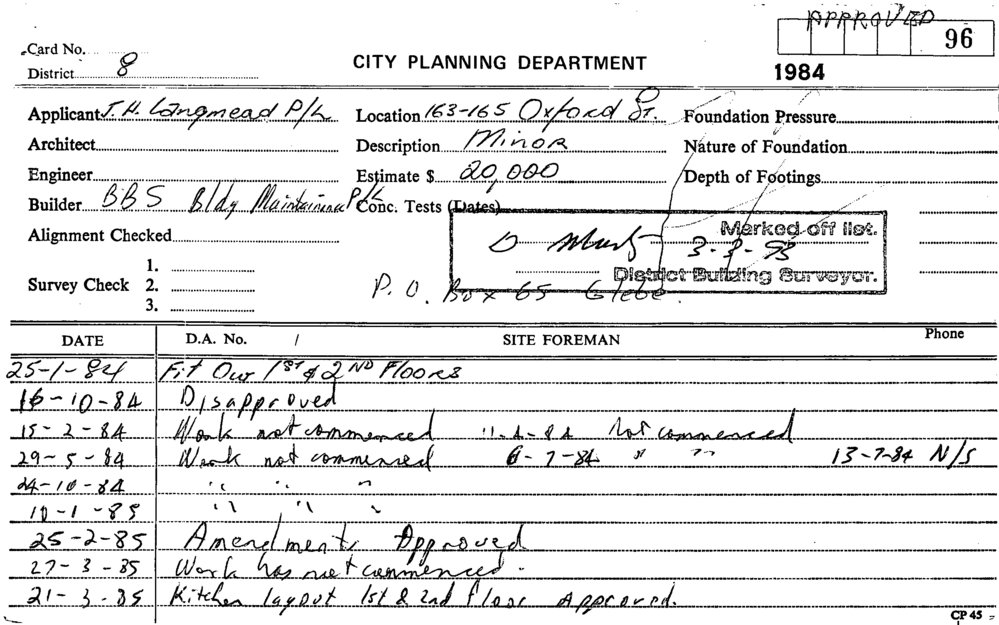 APPROVED
96
Card No.
District 8
CITY PLANNING DEPARTMENT
1984
Applicant J. H. Langmead P/L
Location 163-165 Oxford St.
Foundation Pressure
Architect
Description Minor
Nature of Foundation
Engineer
Estimate $ 20,000
Depth of Footings
Builder BBS Bldg Maintainance P/L
Conc. Tests (Dates)
Alignment Checked
Marked off list.
D 3-3-93
District Building Surveyor.
Survey Check 1.
2.
3.
P. O. Box 65 Glebe.
DATE D.A. No. / SITE FOREMAN Phone
25-1-84 Fit Our 1ST & 2ND Floors
16-10-84 Disapproved
15-2-84 Work not commenced 11-4-84 Not commenced
29-5-84 Work not commensed 6-7-84 " " 13-7-84 N/S
24-10-84 " " "
10-1-85 " " "
25-2-85 Amendments Approved
27-3-85 Work has not commenced.
21-3-85 Kitchen layout 1st & 2nd floor Approved.
CP 45